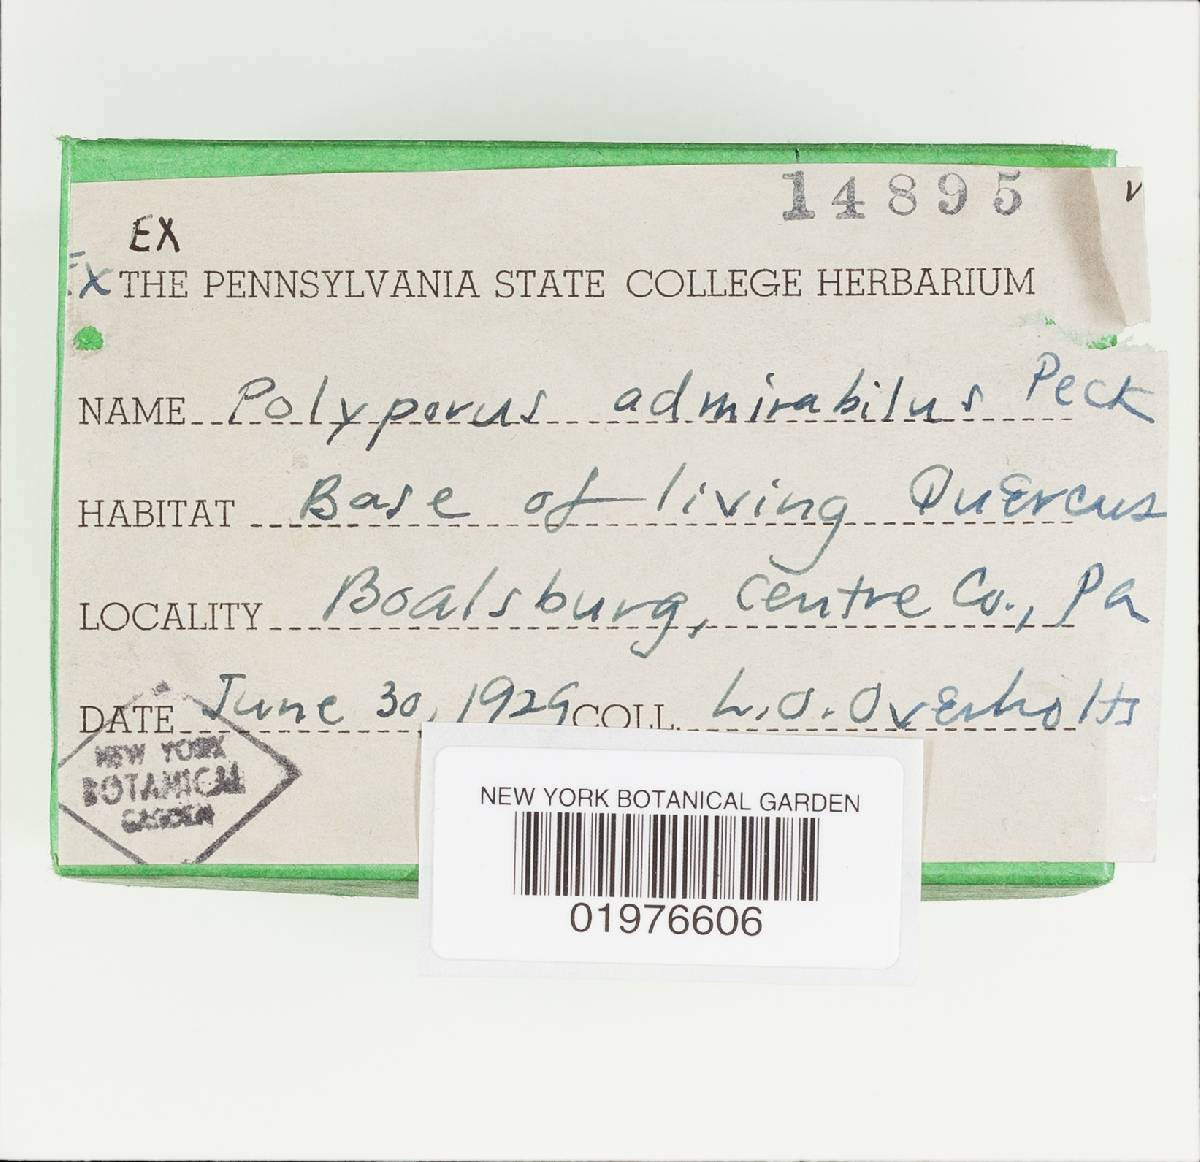 14895
V
EX
EX THE PENNSYLVANIA STATE COLLEGE HERBARIUM
NAME Polyporus admirabilus Peck
HABITAT Base of living Quercus
LOCALITY Boalsburg, Centre Co., Pa
DATE June 30, 1929 COLL. L.O. Overholts
NEW YORK
BOTANICAL
GARDEN
NEW YORK BOTANICAL GARDEN
01976606